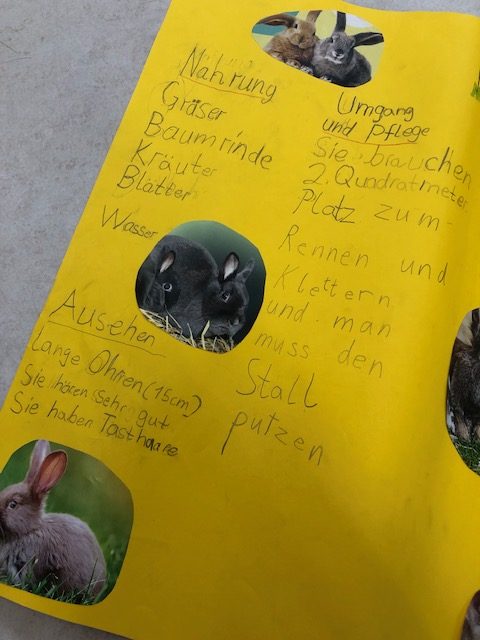 Nahrung
Gräser
Baumrinde
Kräuter
Blätter
Wasser
Umgang
und Pflege
Sie brauchen
2 Quadratmeter
Platz zum
Rennen und
Klettern
und man
muss den
Stall
putzen
Aussehen
lange Ohren (15cm)
Sie hören sehr gut
Sie haben Tasthaare